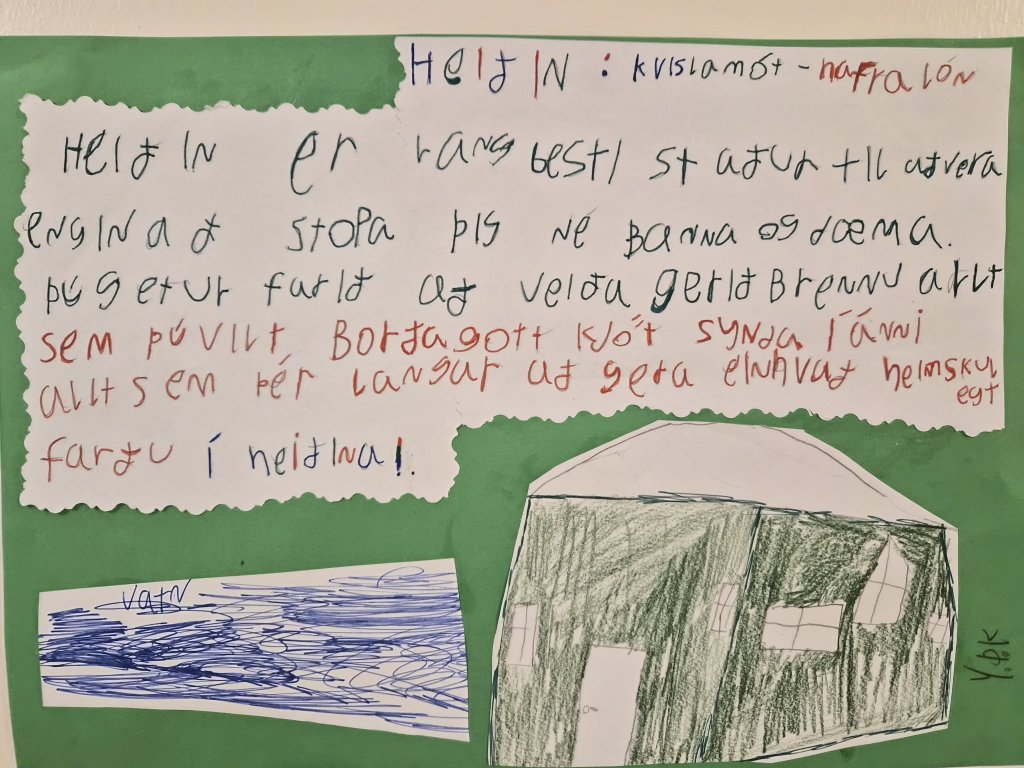 HeIðIN : kvíslamót - hafralón
HeIðIN er lang bestI staður tIl aðvera
engIN að stopa þig né Banna og dæma.
þú getur farIð að veIða gerIð Brennu allt
sem þú vIlt Borðagott kjöt synda í ánni
allt sem þér langar að gera eInhvað heimskulegt
farðu í heiðIna!.
vatn
Y.Þ.K